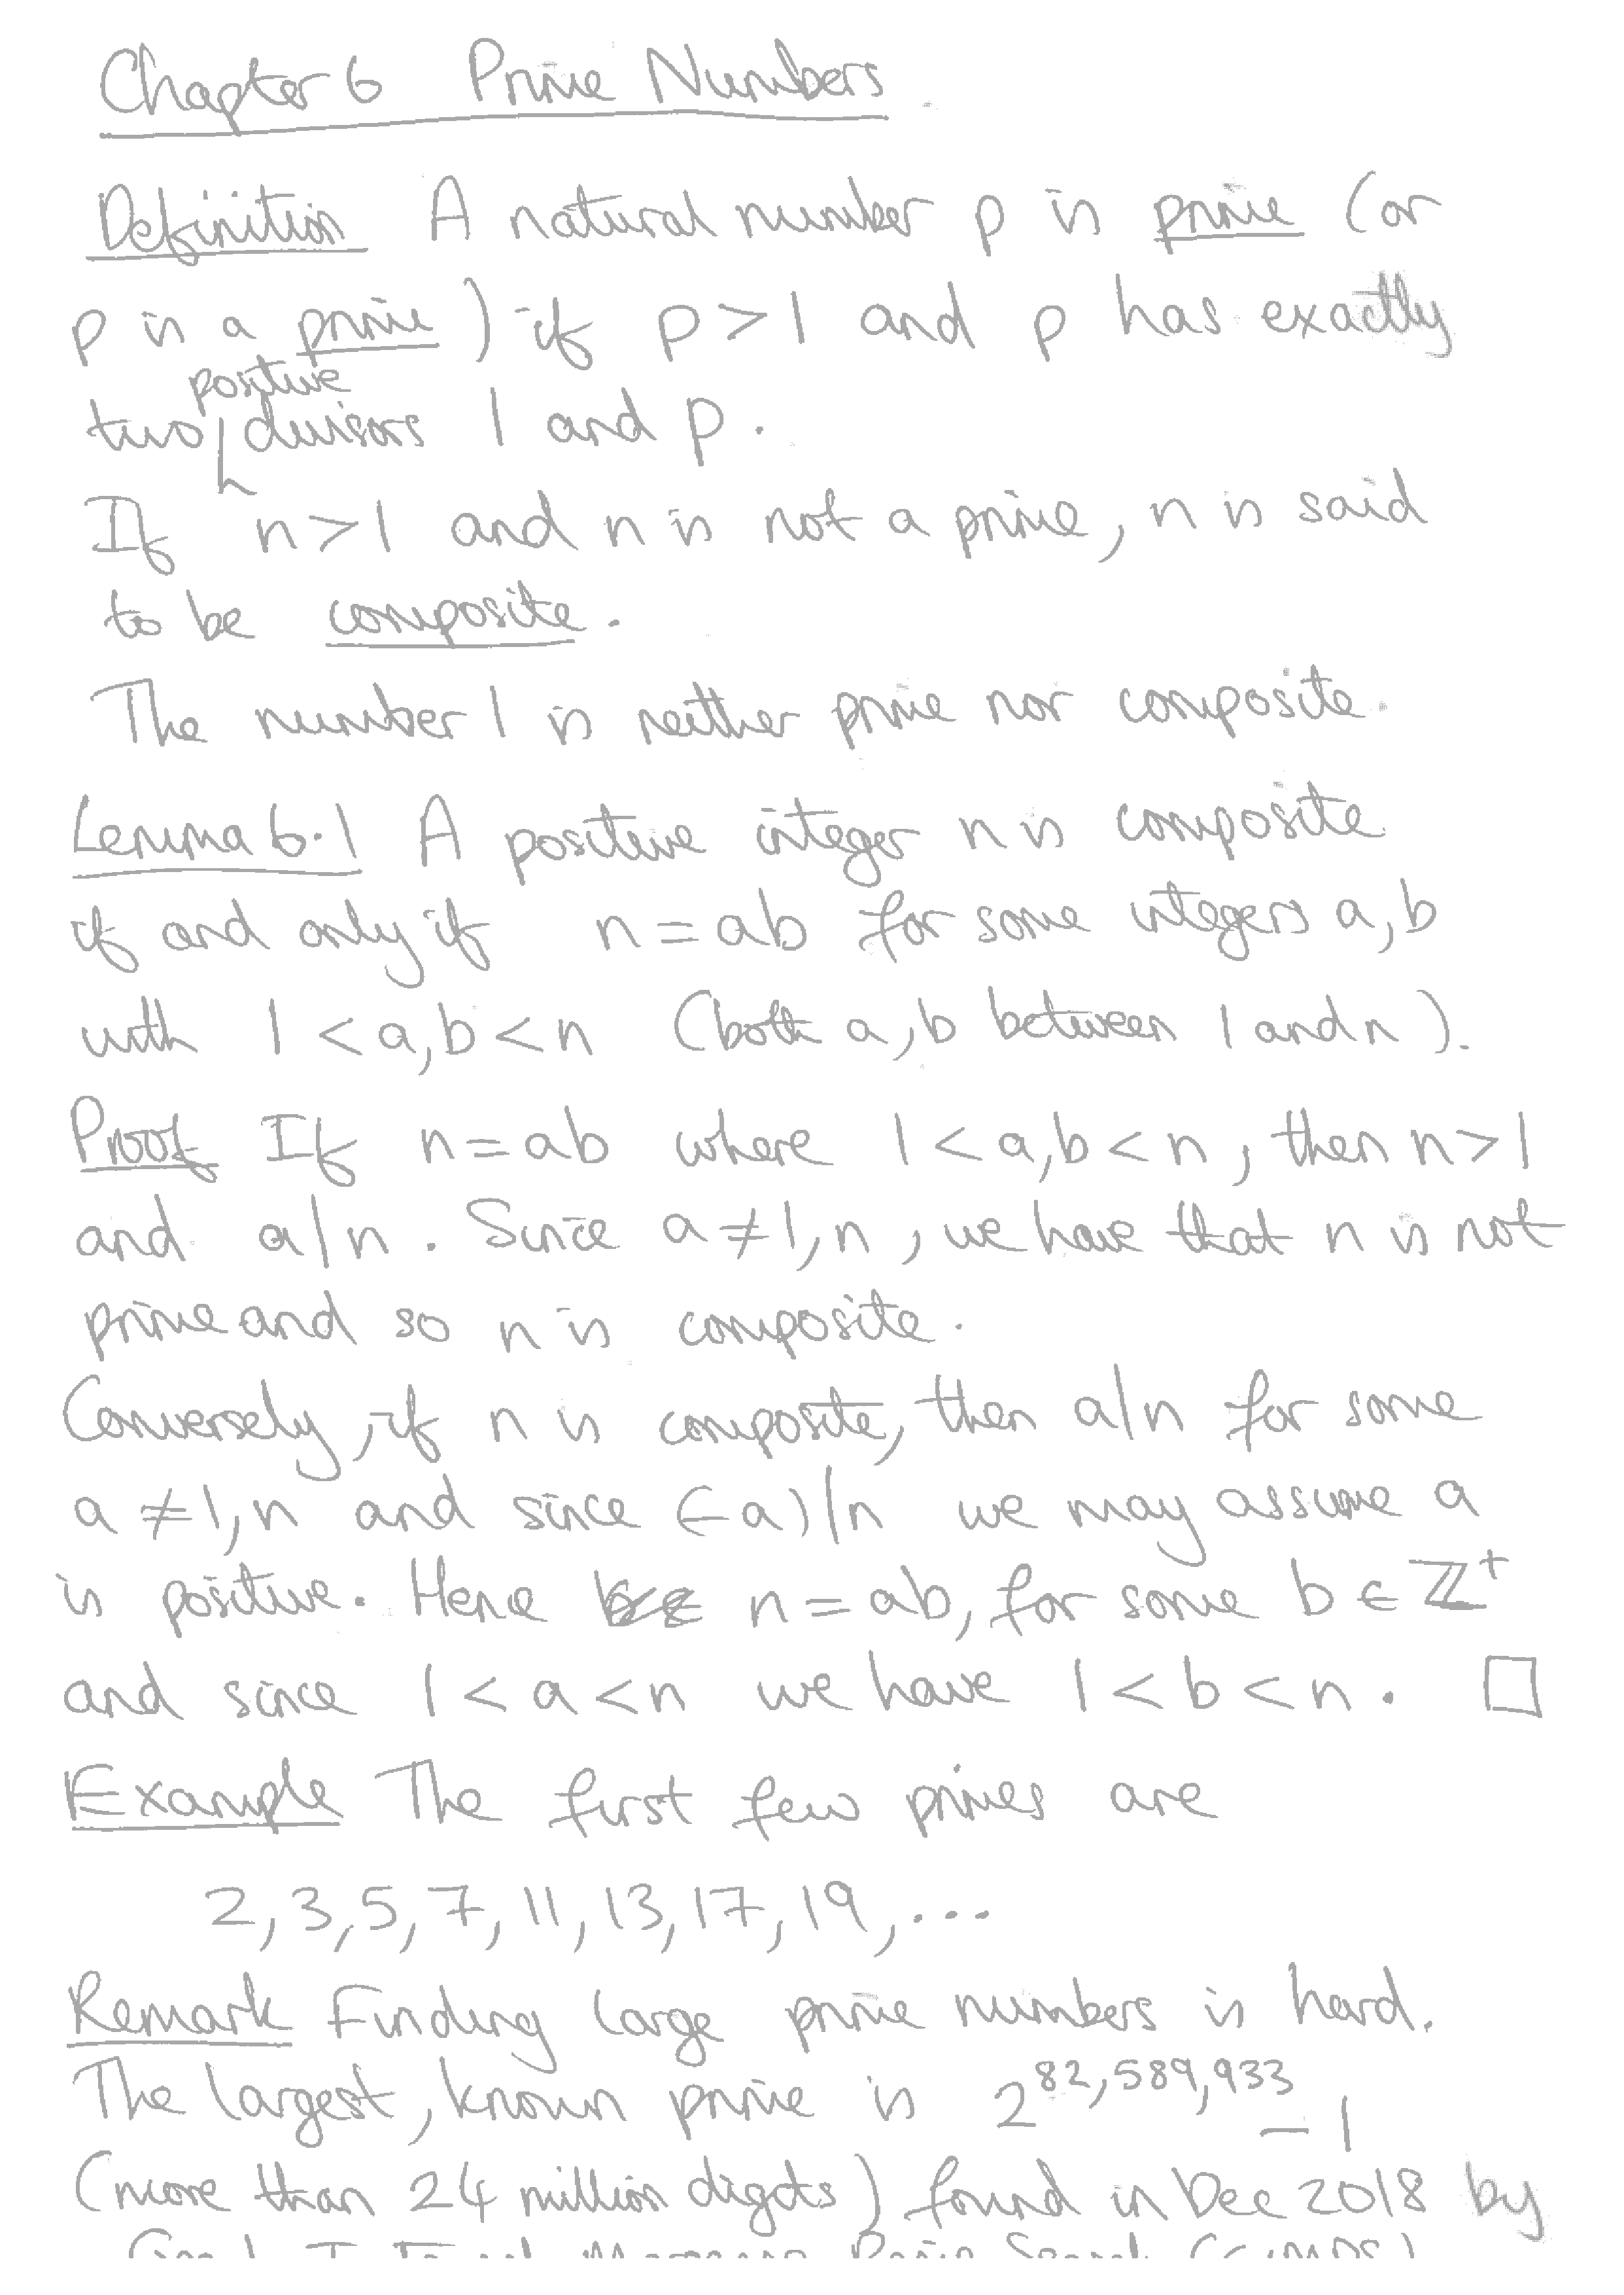 Chapter 6 Prime Numbers
Definition A natural number p is prime (or
p is a prime) if p > 1 and p has exactly
positive
two divisors 1 and p.
If n > 1 and n is not a prime, n is said
to be composite.
The number 1 is neither prime nor composite.
Lemma 6.1 A positive integer n is composite
if and only if n = ab for some integers a, b
with 1 < a, b < n (both a, b between 1 and n).
Proof If n = ab where 1 < a, b < n, then n > 1
and a|n. Since a ≠ 1, n, we have that n is not
prime and so n is composite.
Conversely, if n is composite, then a|n for some
a ≠ 1, n and since (-a)|n we may assume a
is positive. Hence n = ab, for some b ∈ ℤ⁺
and since 1 < a < n we have 1 < b < n. □
Example The first few primes are
2, 3, 5, 7, 11, 13, 17, 19, ...
Remark Finding large prime numbers is hard.
The largest, known prime is 2^82,589,933 - 1
(more than 24 million digits) found in Dec 2018 by